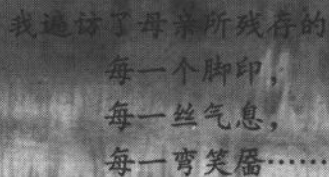 我遍访了母亲所残存的
每一个脚印，
每一丝气息，
每一弯笑靥……